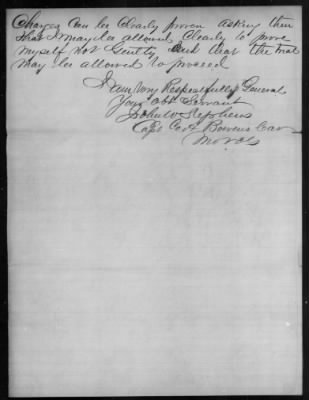 Charges can be clearly proven asking then
that I may be allowed clearly to prove
myself not Guilty and that the trial
may be allowed to proceed
I am Very Respectfully General
Your Obt Servant
John W Stephens
Capt Co A Bowens Cav
Mo Vols